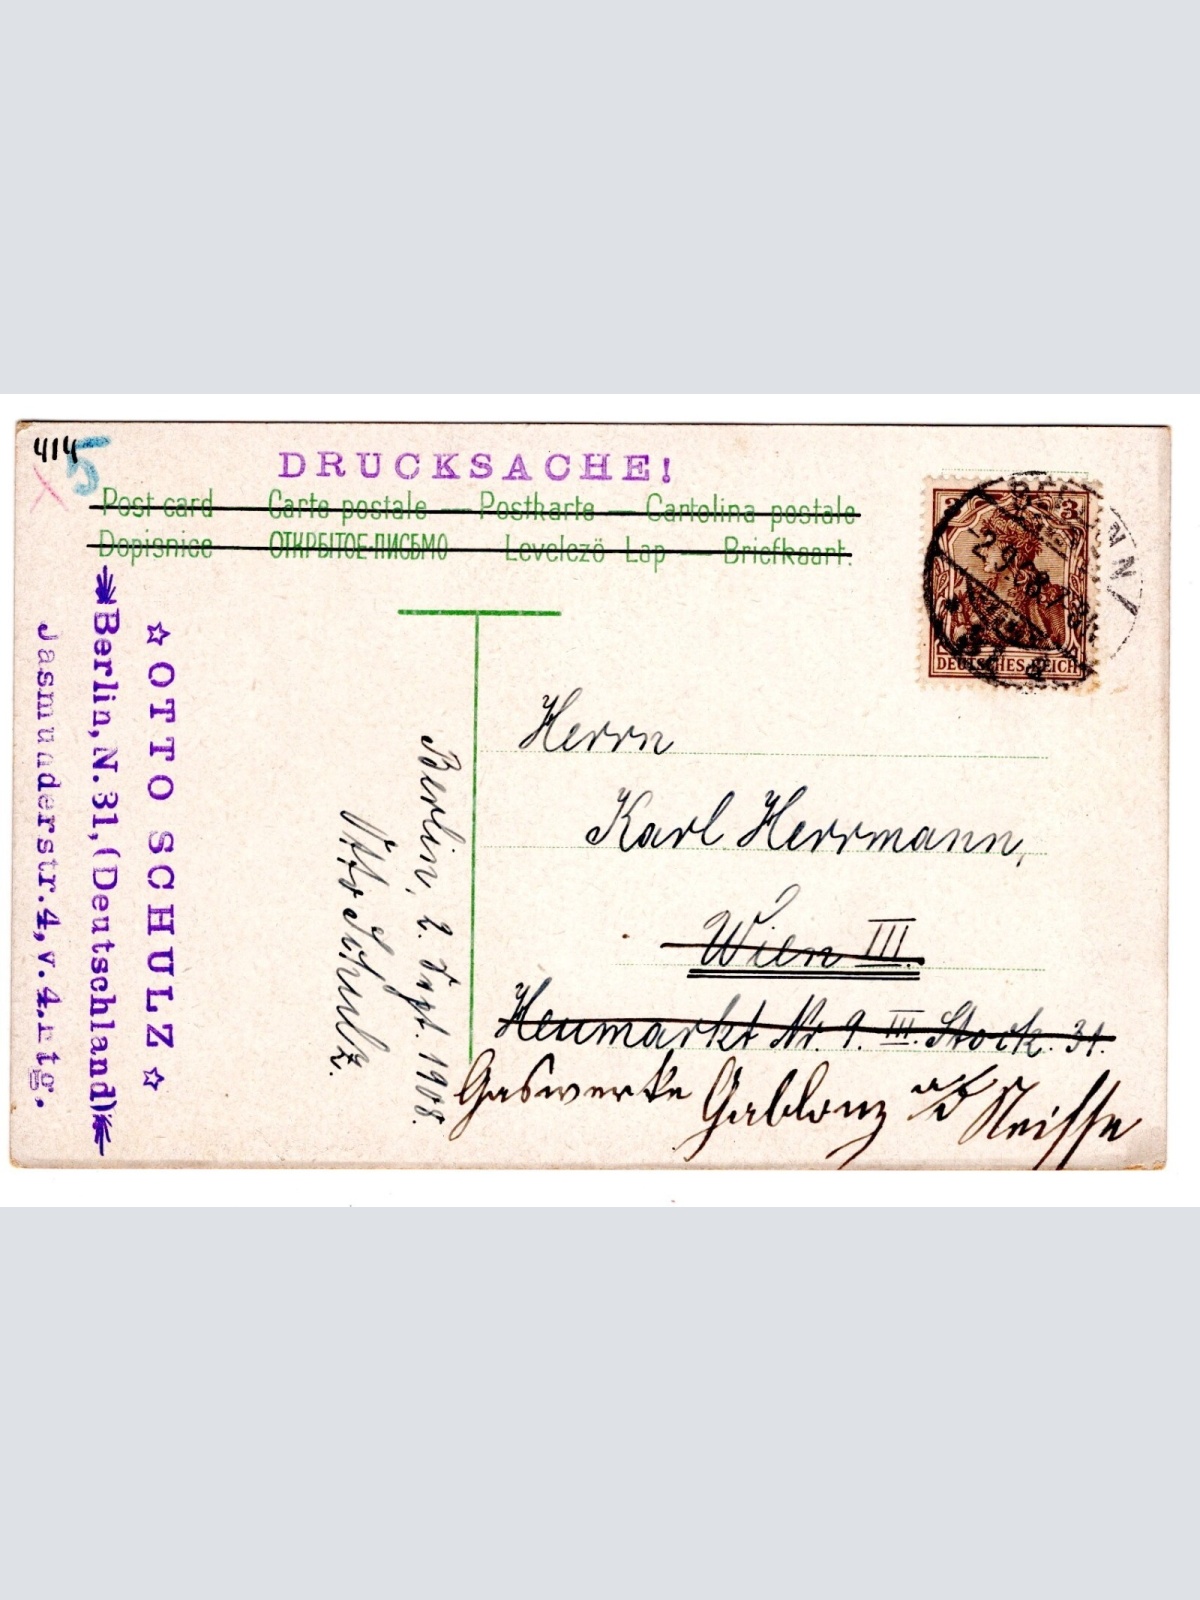 414
5
DRUCKSACHE!
Post card Carte postale — Postkarte — Cartolina postale
Dopisnice ОТКРЫТОЕ-ПИСЬМО Levelezö Lap — Briefkaart.
3 3
BERLIN N
2.9.08.7-8N.
31 a
DEUTSCHES REICH
☆ OTTO SCHULZ ☆
Berlin, N. 31, (Deutschland)
Jasmunderstr. 4, v. 4. rtg.
Berlin, 2. Sept. 1908.
Otto Schulz.
Herrn
Karl Herrmann,
Wien III.
Heumarkt Nr. 9. III. Stock. 31.
Gaswerke Gablonz a/d Neisse